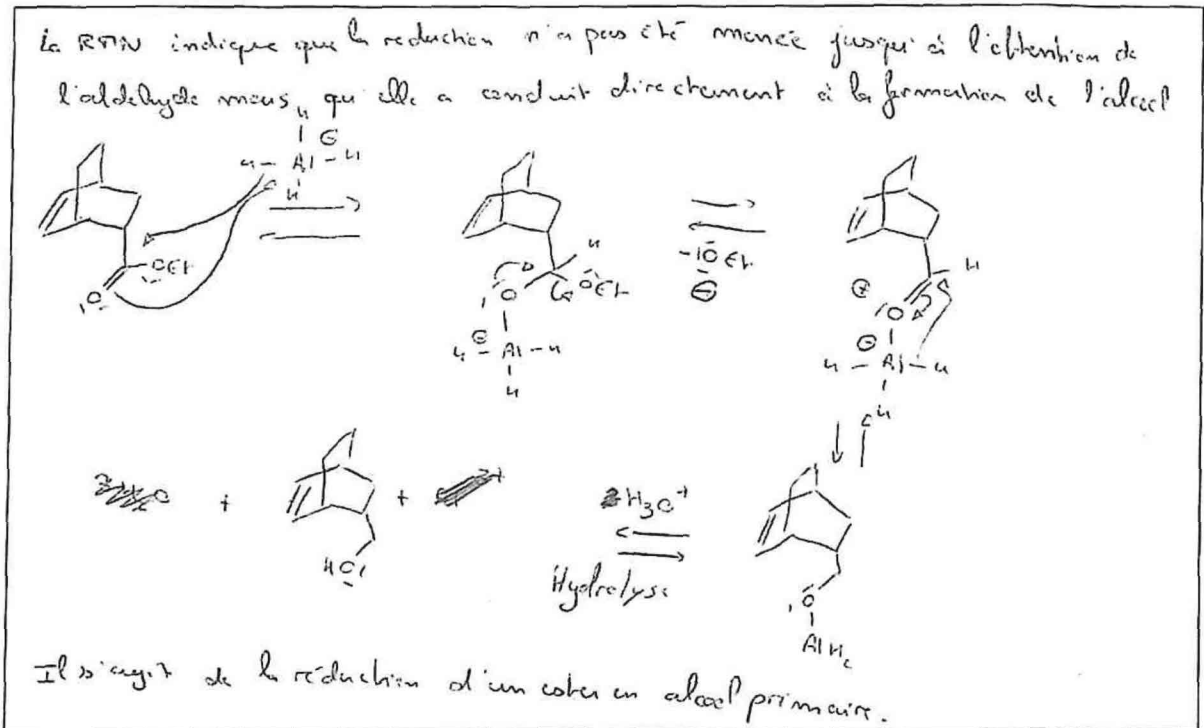 La RMN indique que la reduction n'a pas été menée jusqu'à l'obtention de
l'aldehyde mais qu'elle a conduit directement à la formation de l'alcool
H
H - Al - H
⊖
H
OEt
O
H
O
OEt
⊖
H - Al - H
H
- |OEt
⊖
H
⊕
O
⊖
H - Al - H
H
+
HO
+
H3O+
Hydrolyse
O
AlH2
Il s'agit de la réduction d'un ester en alcool primaire.